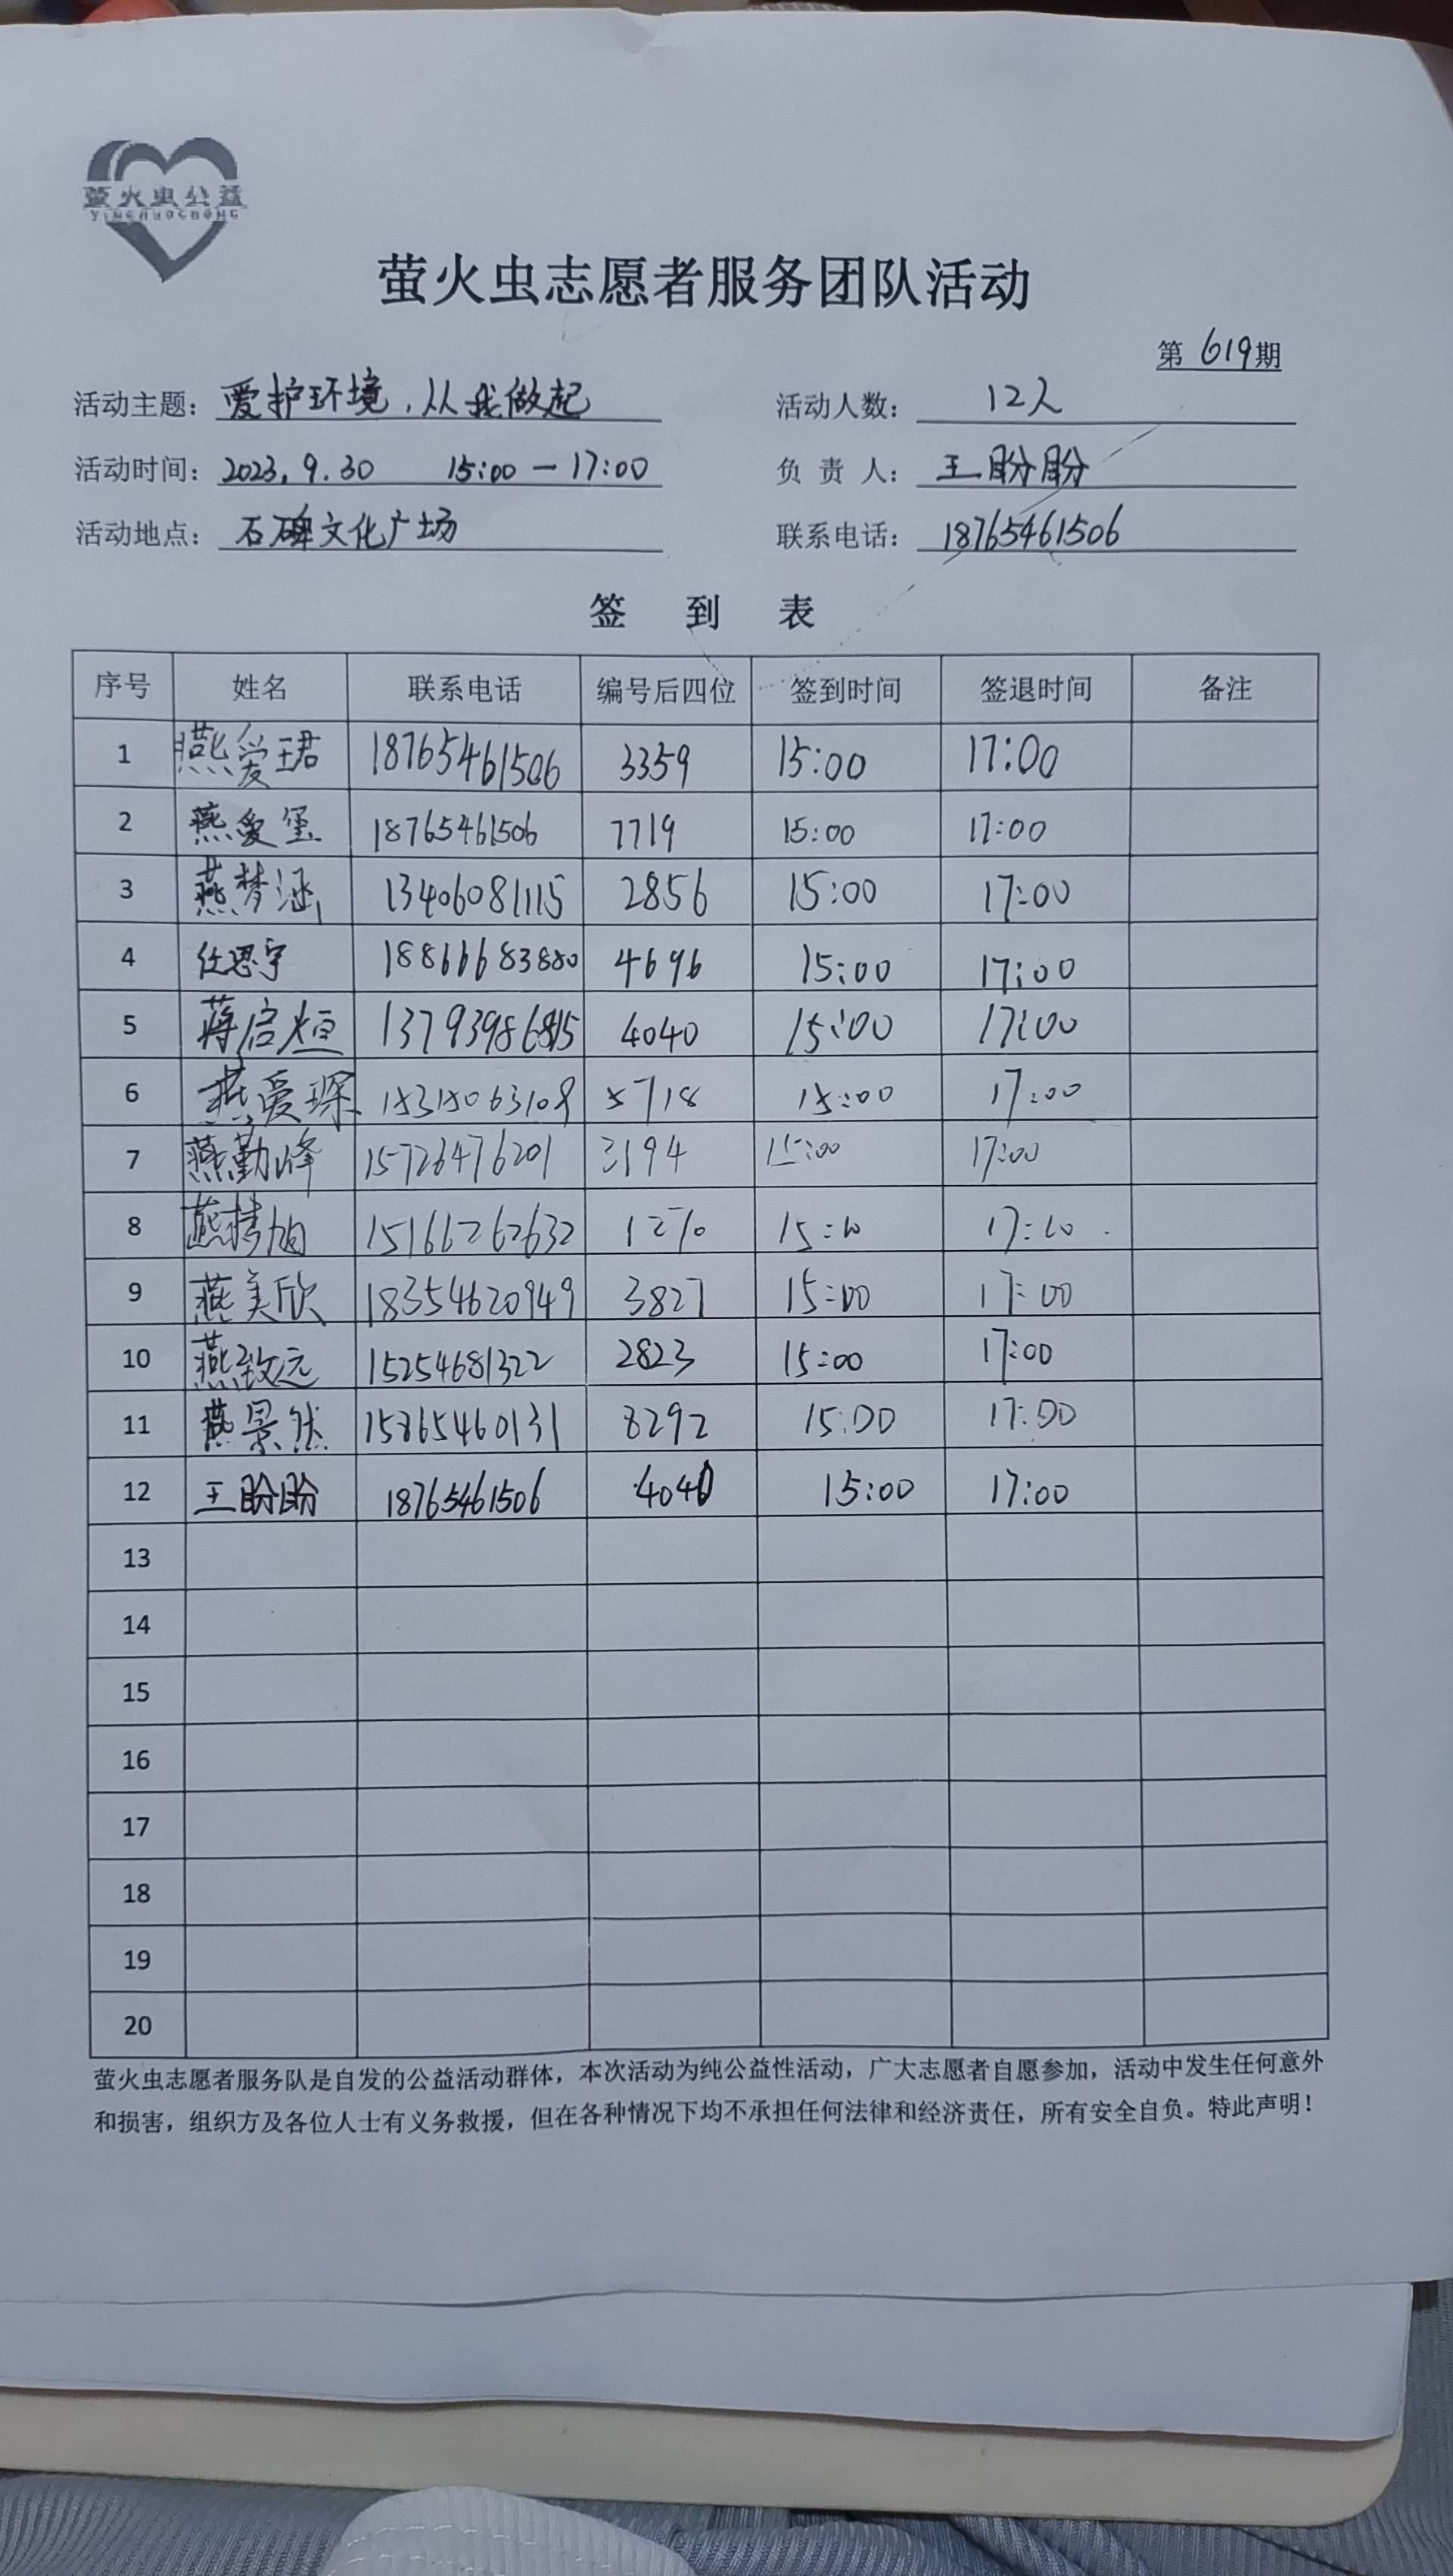 萤火虫公益
YINGHUOCHONG
萤火虫志愿者服务团队活动
第 619期
活动主题：爱护环境，从我做起 活动人数：12人
活动时间：2023.9.30 15:00－17:00 负责人：王盼盼
活动地点：石碑文化广场 联系电话：18765461506
签 到 表
序号 姓名 联系电话 编号后四位 签到时间 签退时间 备注
1 燕爱珺 18765461506 3359 15:00 17:00
2 燕爱玺 18765461506 7719 15:00 17:00
3 燕梦涵 13406081115 2856 15:00 17:00
4 任思宇 18866683880 4696 15:00 17:00
5 蒋启烜 13793986815 4040 15:00 17:00
6 燕爱琛 5718 15:00 17:00
7 燕勤峰 15726476201 3194 15:00 17:00
8 燕 15166262632 15:00 17:00
9 燕美欣 18354620949 3827 15:00 17:00
10 燕致远 15254681322 2823 15:00 17:00
11 燕景然 15865460131 8292 15:00 17:00
12 王盼盼 18765461506 15:00 17:00
13
14
15
16
17
18
19
20
萤火虫志愿者服务队是自发的公益活动群体，本次活动为纯公益性活动，广大志愿者自愿参加，活动中发生任何意外
和损害，组织方及各位人士有义务救援，但在各种情况下均不承担任何法律和经济责任，所有安全自负。特此声明！